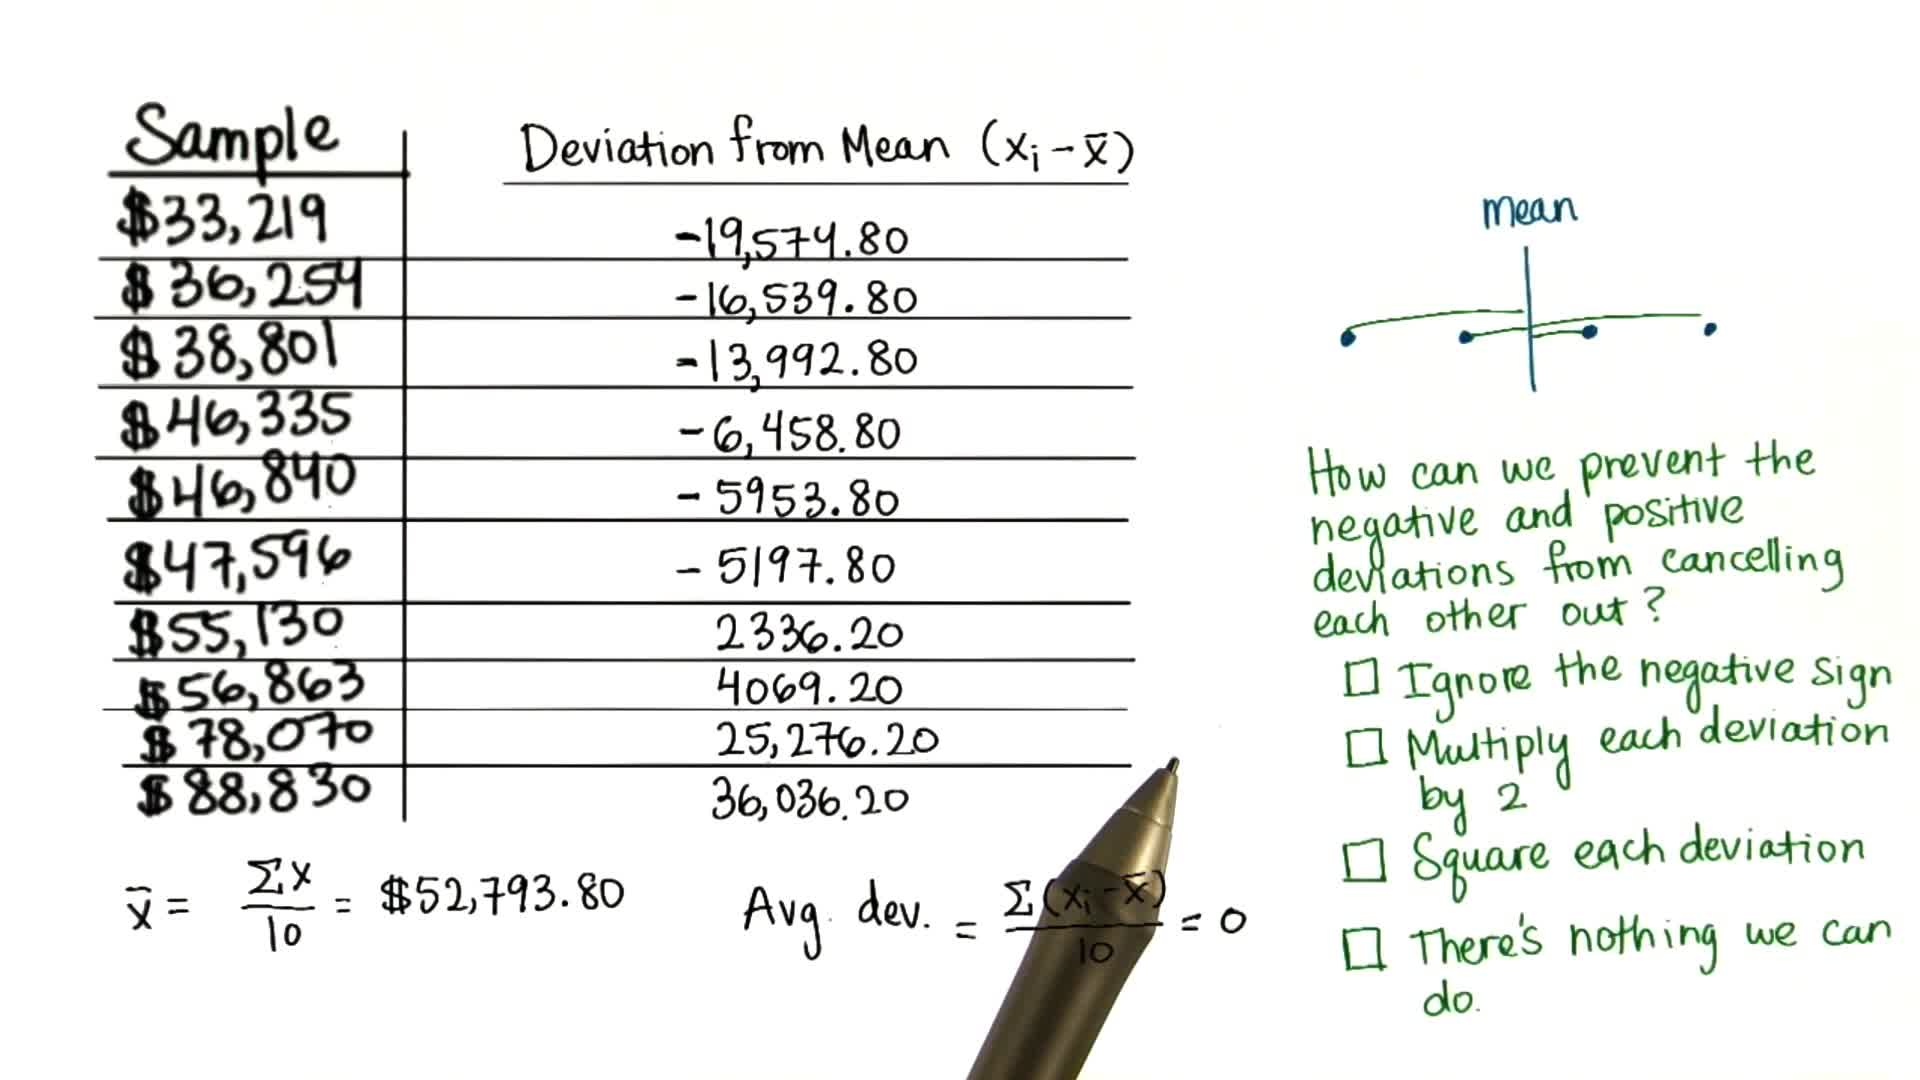 Sample
Deviation from Mean (xᵢ - x̄)
$33,219
-19,574.80
$36,254
-16,539.80
$38,801
-13,992.80
$46,335
-6,458.80
$46,840
-5953.80
$47,596
-5197.80
$55,130
2336.20
$56,863
4069.20
$78,070
25,276.20
$88,830
36,036.20
x̄ = Σx/10 = $52,793.80
Avg. dev. = Σ(xᵢ - x̄)/10 = 0
mean
How can we prevent the
negative and positive
deviations from cancelling
each other out?
☐ Ignore the negative sign
☐ Multiply each deviation
by 2
☐ Square each deviation
☐ There's nothing we can
do.